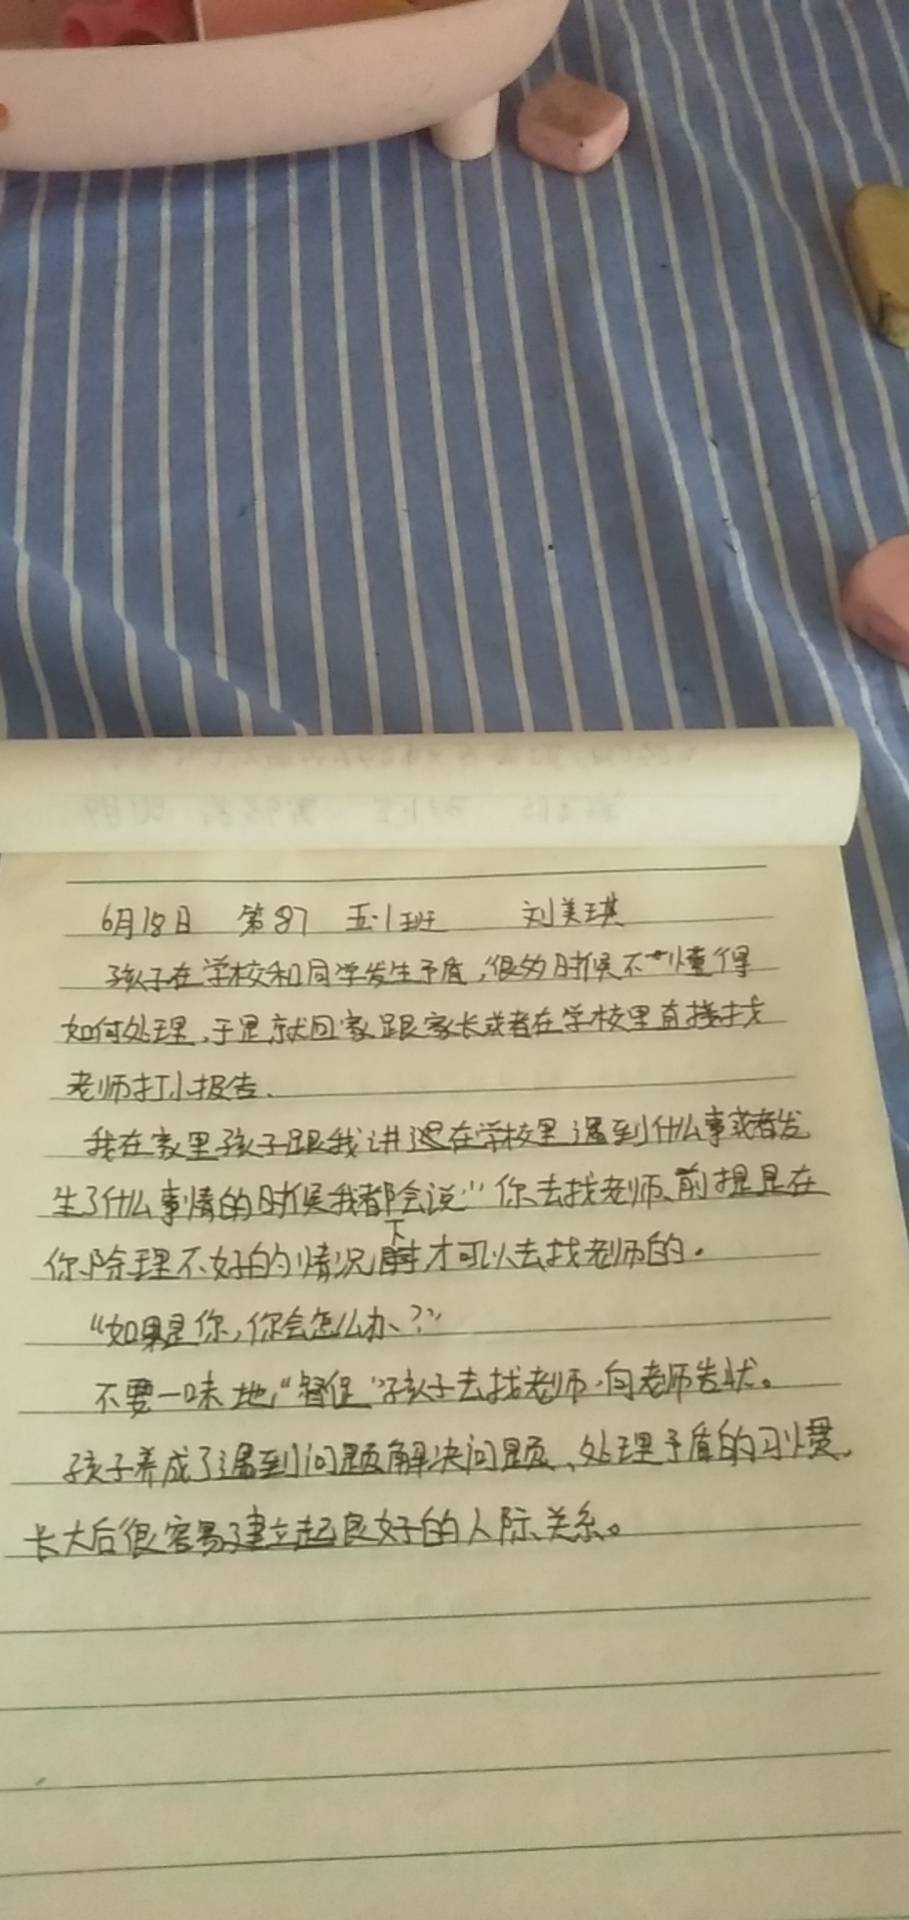 6月18日 第87 五·1班 刘美琪
孩子在学校和同学发生矛盾,很多时候不懂得
如何处理、于是就回家跟家长或者在学校里直接找
老师打小报告.
我在家里孩子跟我讲 在学校里遇到什么事或者发
生了什么事情的时候我都会说“你去找老师、前提是在
你、除理不好的情况下才可以去找老师的.
“如果是你,你会怎么办、?”
不要一味地,“督促”孩子去找老师.向老师告状。
孩子养成了遇到问题解决问题、处理矛盾的习惯,
长大后很容易建立起良好的人际关系。